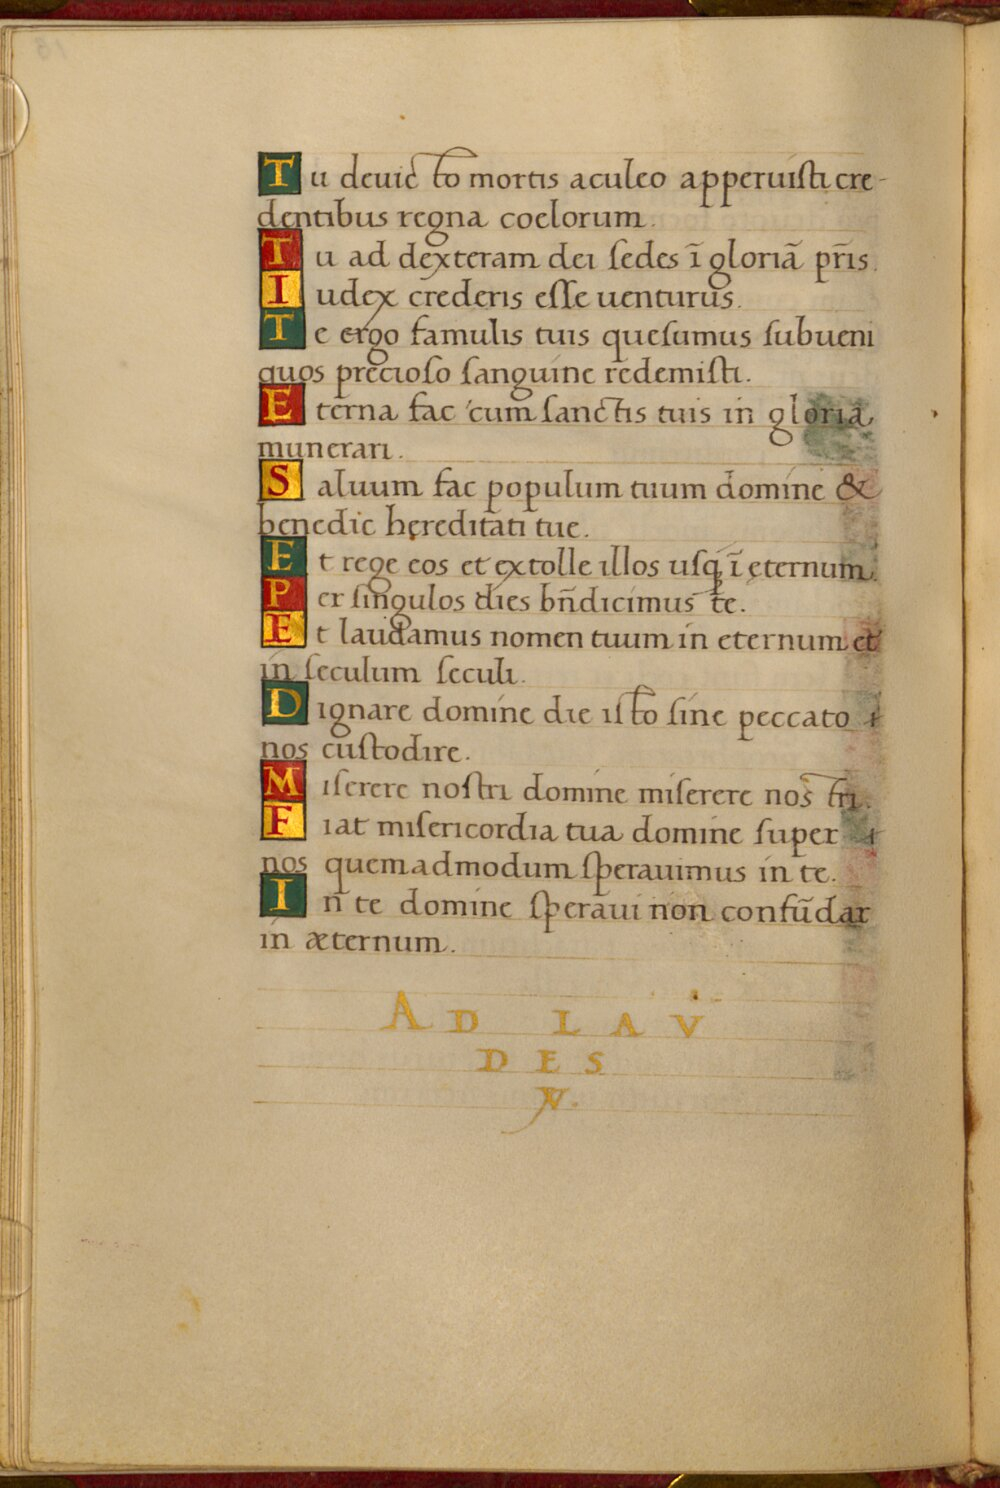 Tu deuicto mortis aculeo apperuisti cre-
dentibus regna coelorum.
Tu ad dexteram dei ſedes ī gloriā pr̄is.
Iudex crederis eſſe uenturus.
Te ergo famulis tuis queſumus ſubueni
quos precioſo ſanguine redemiſti.
Eterna fac cum ſanctis tuis in gloria
munerari.
Saluum fac populum tuum domine &
benedic hęreditati tue.
Et rege eos et extolle illos uſq; ī ęternum.
Per ſingulos dies bn̄dicimus te.
Et laudamus nomen tuum in eternum et
in ſeculum ſeculi.
Dignare domine die iſto ſine peccato
nos cuſtodire.
Miſerere noſtri domine miſerere noſtri.
Fiat miſericordia tua domine ſuper
nos quemadmodum ſperauimus in te.
In te domine ſperaui non confūdar
in æternum.
AD LAV
DES
V.